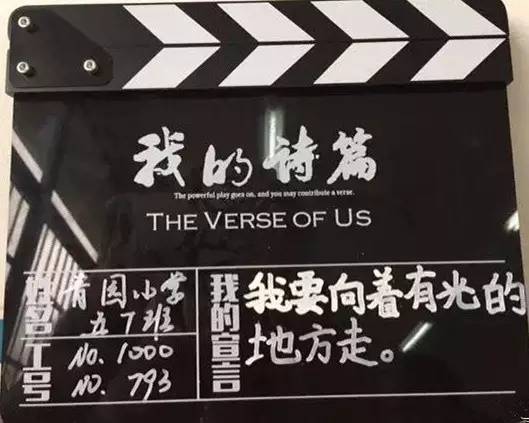 我的诗篇
The powerful play goes on, and you may contribute a verse.
THE VERSE OF US
姓名
青园小学
五7班
工号
No. 1000
NO. 793
我的宣言
我要向着有光的
地方走。